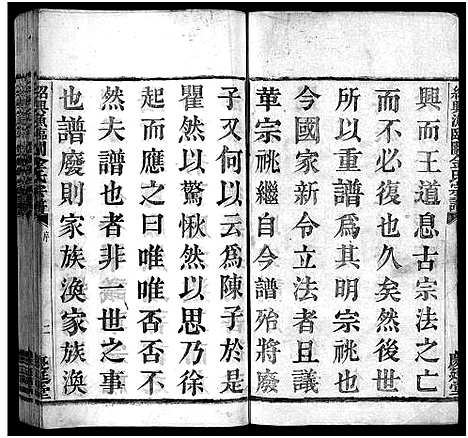 紹興漁臨關金氏宗譜
興而王道息古宗法之亡
而不必復也久矣然後世
所以重譜爲其明宗祧也
今國家新令立法者且議
革宗祧繼自今譜殆將廢
子又何以云爲陳子於是
瞿然以驚愀然以思乃徐
起而應曰唯唯否否不不
然夫譜也者非一世之事
也譜廢則家族渙家族渙
紹興漁臨關金氏宗譜
序
二